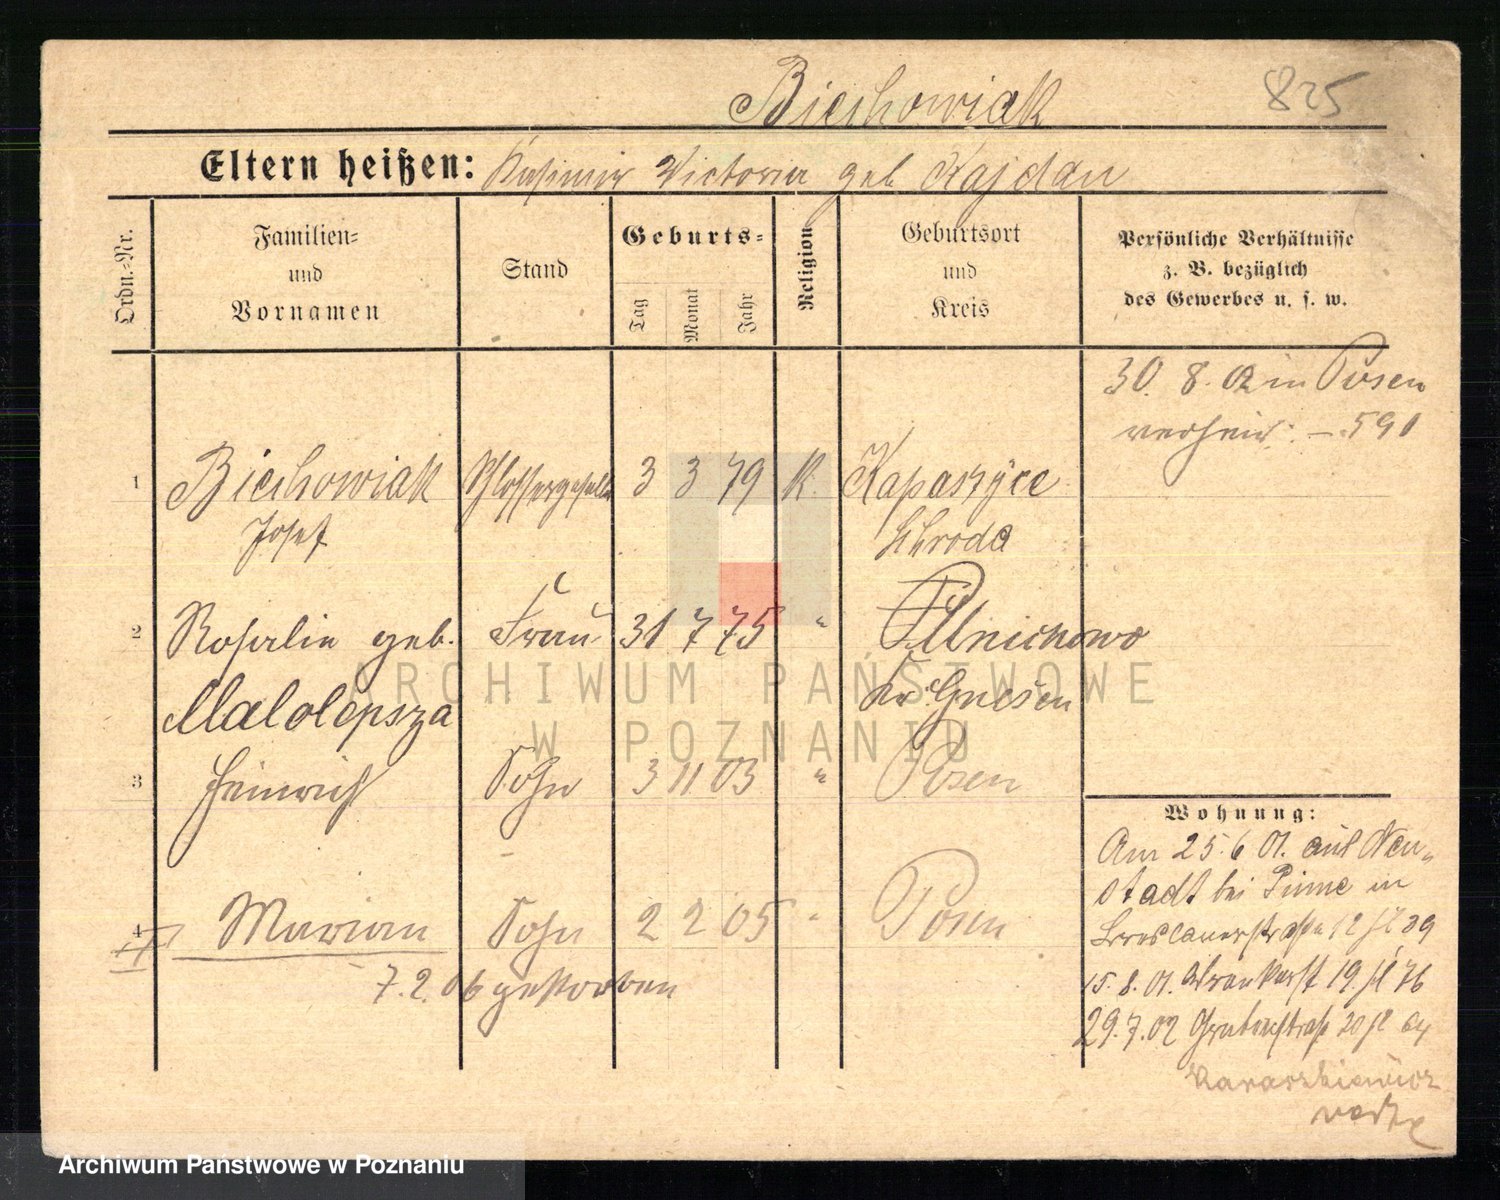 Biechowiak 825
Eltern heißen: Kasimir Victoria geb Kajdan
Ordn.-Nr.
Familien-
und
Vornamen
Stand
Geburts-
Tag
Monat
Jahr
Religion
Geburtsort
und
Kreis
Persönliche Verhältnisse
z. B. bezüglich
des Gewerbes u. s. w.
30. 8. 02 in Posen
verheir. – 591
1 Biechowiak Schlossergeselle 3 3 79 K. Kapaszyce
Josef Schroda
2 Rosalie geb. Frau 31 7 75 " Mnichowo
Malolepsza Kr. Gnesen
3 Heinrich Sohn 3 11 03 " Posen
4 Marian Sohn 2 2 05 " Posen
7. 2. 06 gestorben
Wohnung:
Am 25. 6 01. aus Neu-
stadt bei Pinne in
Breslauerstraße 12
15. 8. 01. 19. 76
29. 7. 02 Grabenstraße 20 64
ARCHIWUM PAŃSTWOWE
W POZNANIU
Archiwum Państwowe w Poznaniu